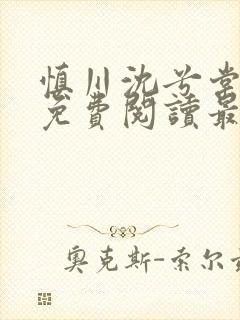 慎川沈兮棠
免費閱讀最
奧克斯-索尔